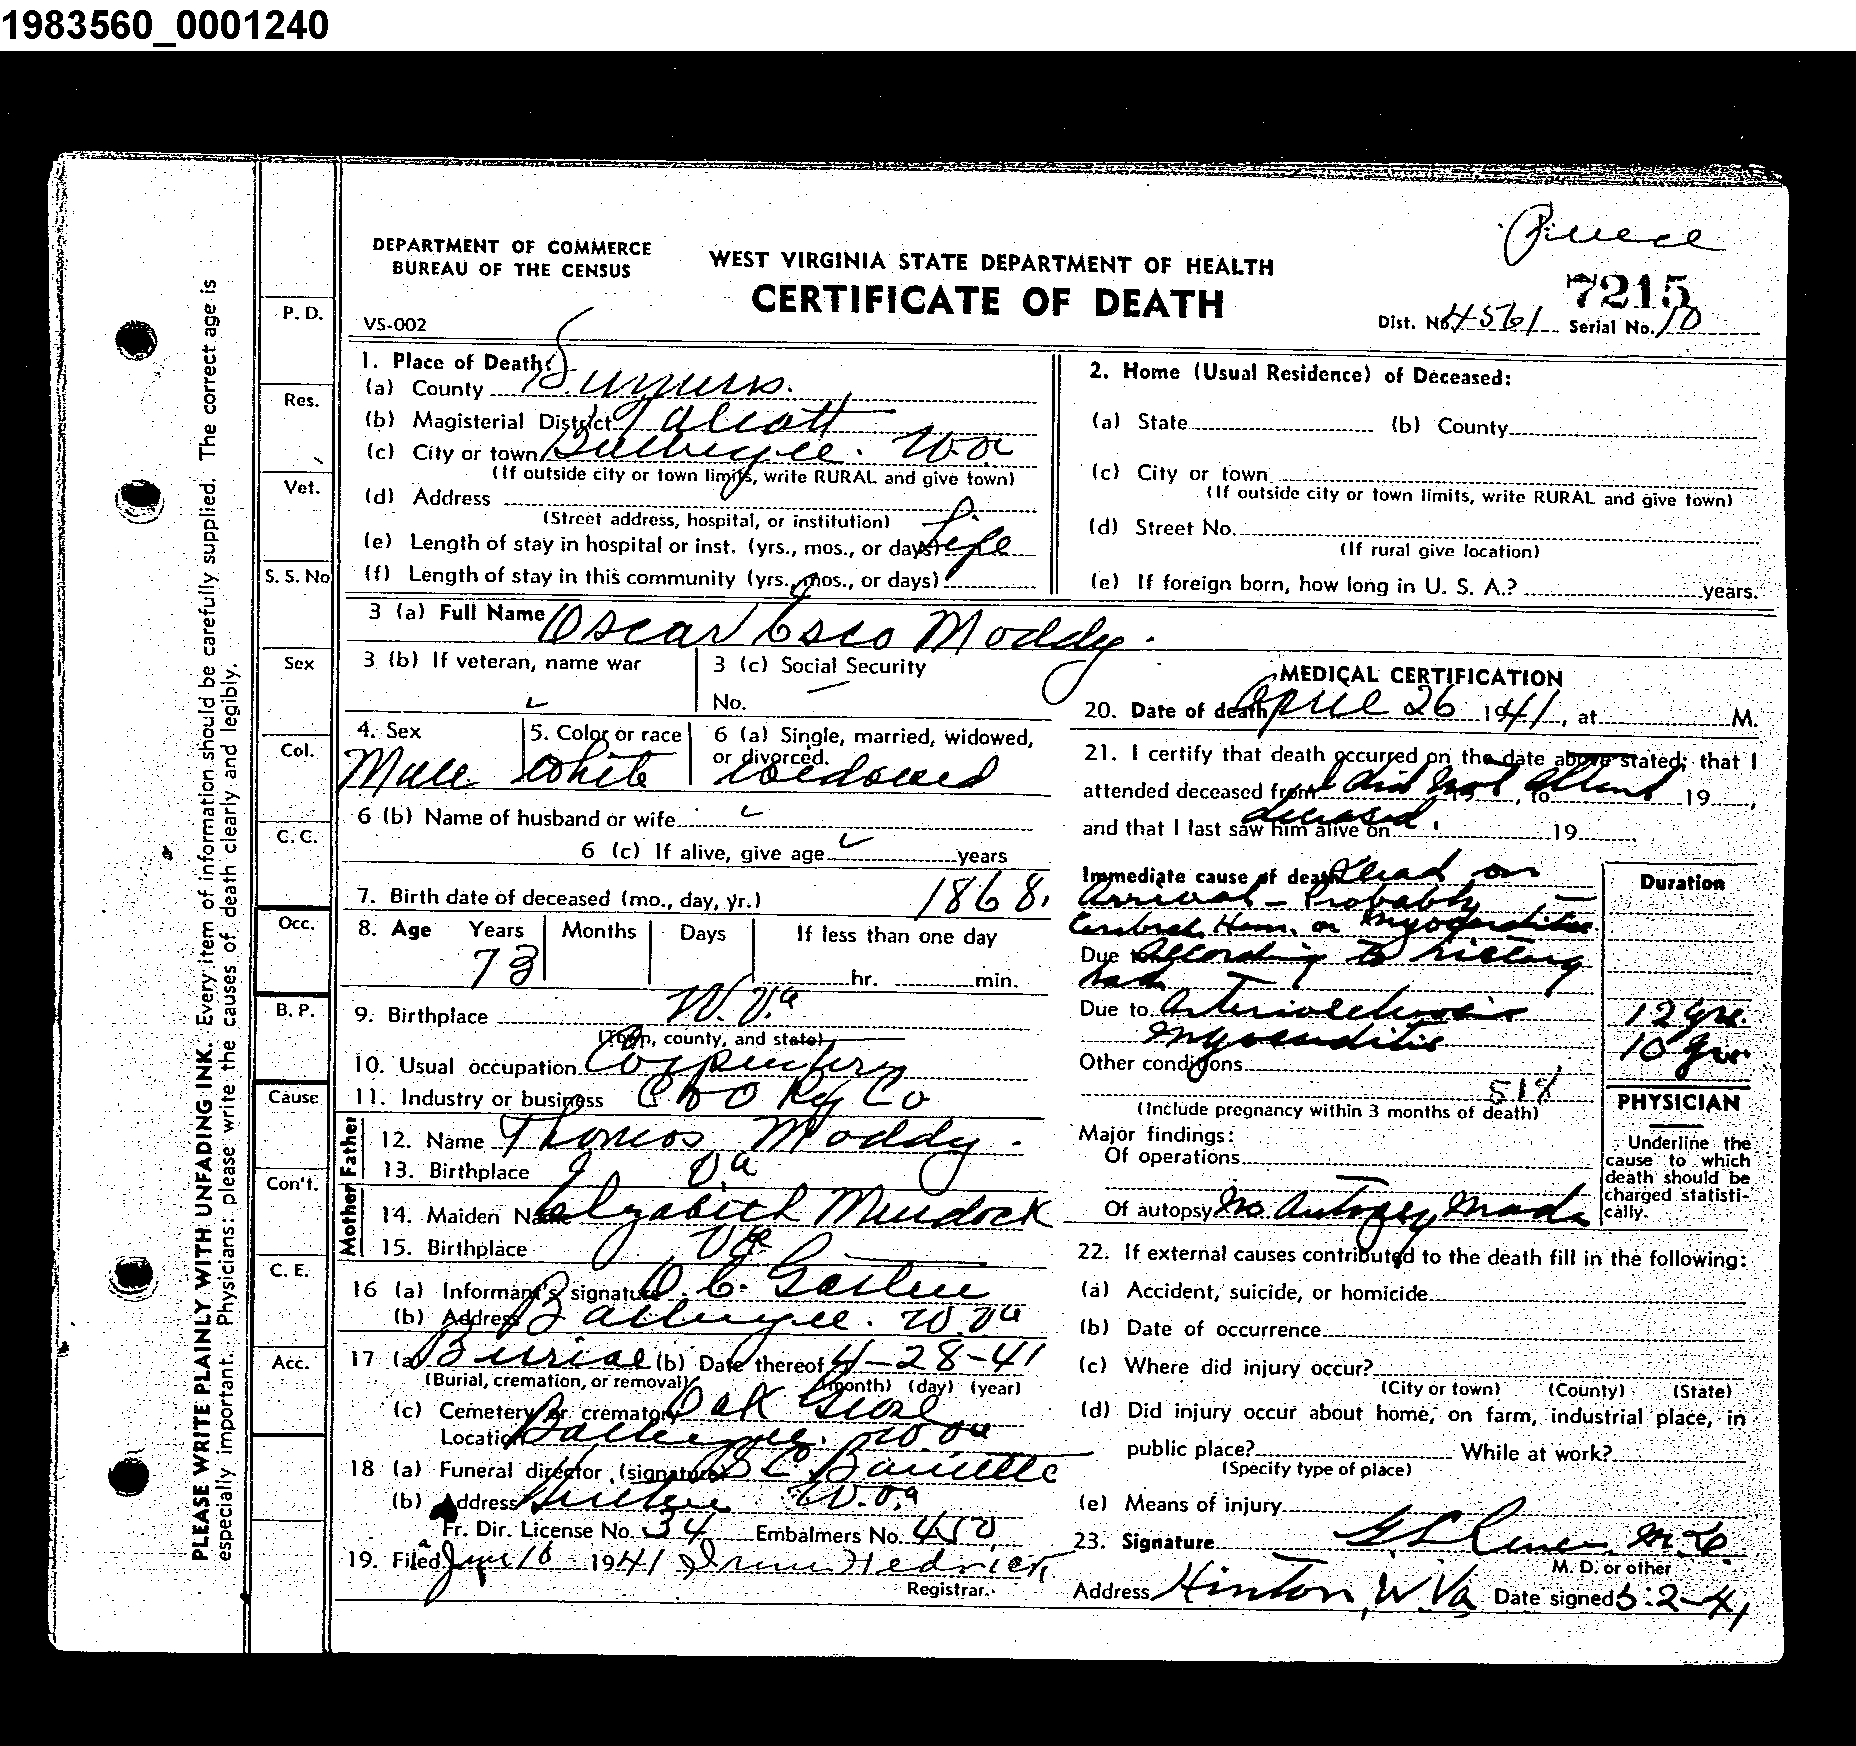 1983560_0001240
DEPARTMENT OF COMMERCE
BUREAU OF THE CENSUS
WEST VIRGINIA STATE DEPARTMENT OF HEALTH
CERTIFICATE OF DEATH
7215
VS-002
Dist. No. 4561 Serial No. 10
PLEASE WRITE PLAINLY WITH UNFADING INK. Every item of information should be carefully supplied. The correct age is
especially important. Physicians: please write the causes of death clearly and legibly.
P. D.
Res.
Vet.
S. S. No
Sex
Col.
C. C.
Occ.
B. P.
Cause
Con't.
C. E.
Acc.
1. Place of Death:
(a) County
(b) Magisterial District Talcott
(c) City or town W. Va
(If outside city or town limits, write RURAL and give town)
(d) Address
(Street address, hospital, or institution)
(e) Length of stay in hospital or inst. (yrs., mos., or days) Life
(f) Length of stay in this community (yrs., mos., or days)
2. Home (Usual Residence) of Deceased:
(a) State (b) County
(c) City or town
(If outside city or town limits, write RURAL and give town)
(d) Street No.
(If rural give location)
(e) If foreign born, how long in U. S. A.? years.
3 (a) Full Name Oscar Esco Moddy.
3 (b) If veteran, name war
3 (c) Social Security
No. —
4. Sex
Male
5. Color or race
White
6 (a) Single, married, widowed,
or divorced.
Widowed
6 (b) Name of husband or wife
6 (c) If alive, give age years
7. Birth date of deceased (mo., day, yr.) 1868.
8. Age Years Months Days If less than one day
73 hr. min.
9. Birthplace W. Va
(Town, county, and state)
10. Usual occupation
11. Industry or business C & O Ry Co
Father
12. Name Thomas Moddy.
13. Birthplace Va
Mother
14. Maiden Name Elzabith Murdock
15. Birthplace Va
16 (a) Informant's signature O. C.
(b) Address W. Va
17 (a) Burial (b) Date thereof 4-28-41
(Burial, cremation, or removal) (month) (day) (year)
(c) Cemetery or crematory Oak
Location W. Va
18 (a) Funeral director (signature)
(b) Address W. Va
Fr. Dir. License No. 34 Embalmers No. 450
19. Filed 1941 Hedrick
Registrar.
MEDICAL CERTIFICATION
20. Date of death April 26 1941, at M.
21. I certify that death occurred on the date above stated; that I
attended deceased from I did not attend 19 ,
deceased.
and that I last saw him alive on 19 .
Immediate cause of death Dead on
Arrival - Probably
Cerebral Hem. or Myocarditis
Due to According to history
had
Due to Arteriosclerosis 12 yrs.
Myocarditis 10 yrs.
Other conditions
(Include pregnancy within 3 months of death)
Duration
Major findings:
Of operations
Of autopsy No Autopsy Made
PHYSICIAN
Underline the
cause to which
death should be
charged statisti-
cally.
22. If external causes contributed to the death fill in the following:
(a) Accident, suicide, or homicide
(b) Date of occurrence
(c) Where did injury occur?
(City or town) (County) (State)
(d) Did injury occur about home, on farm, industrial place, in
public place? While at work?
(Specify type of place)
(e) Means of injury
23. Signature
M. D. or other
Address Hinton, W. Va Date signed 5-2-41